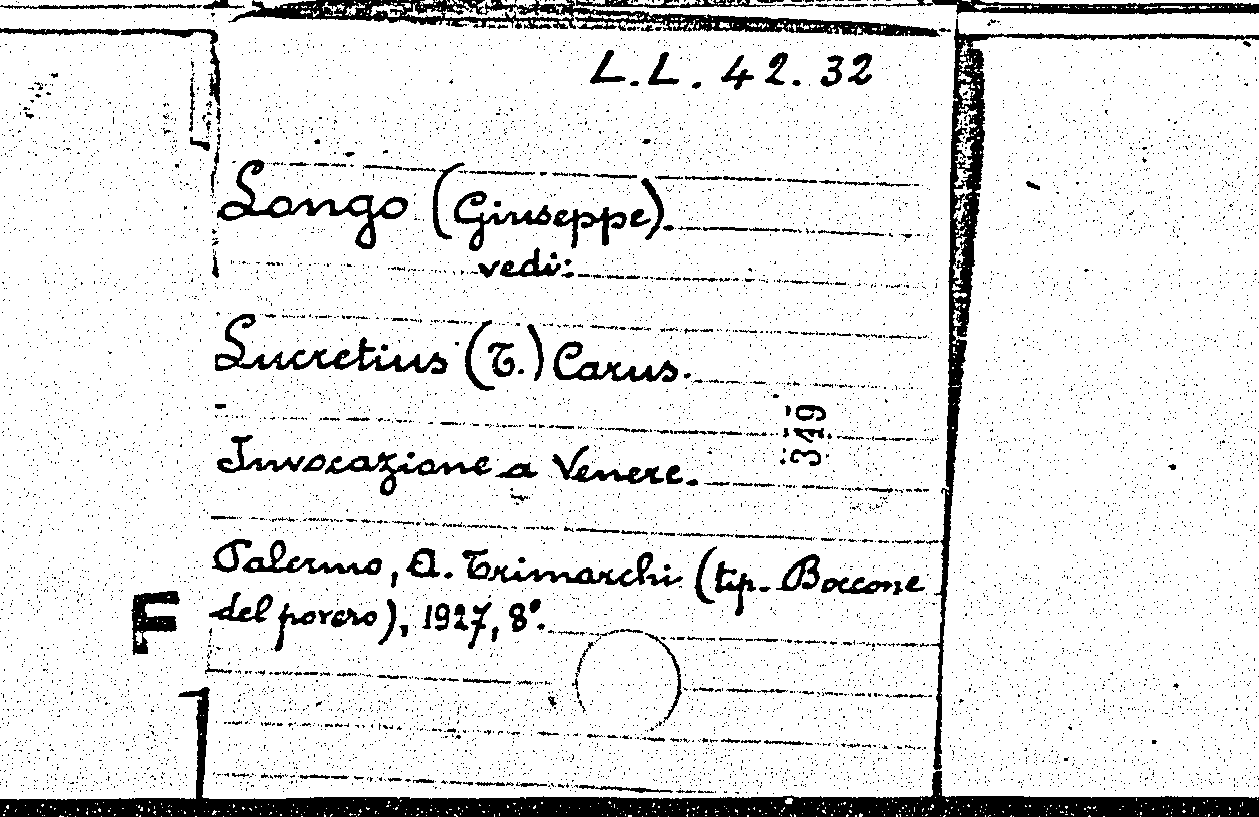 L.L. 42. 32
Longo (Giuseppe).
vedi:
Lucretius (T.) Carus.
349
Invocazione a Venere.
Palermo, A. Trimarchi (tip. Boccone
del povero), 1927, 8°.
F